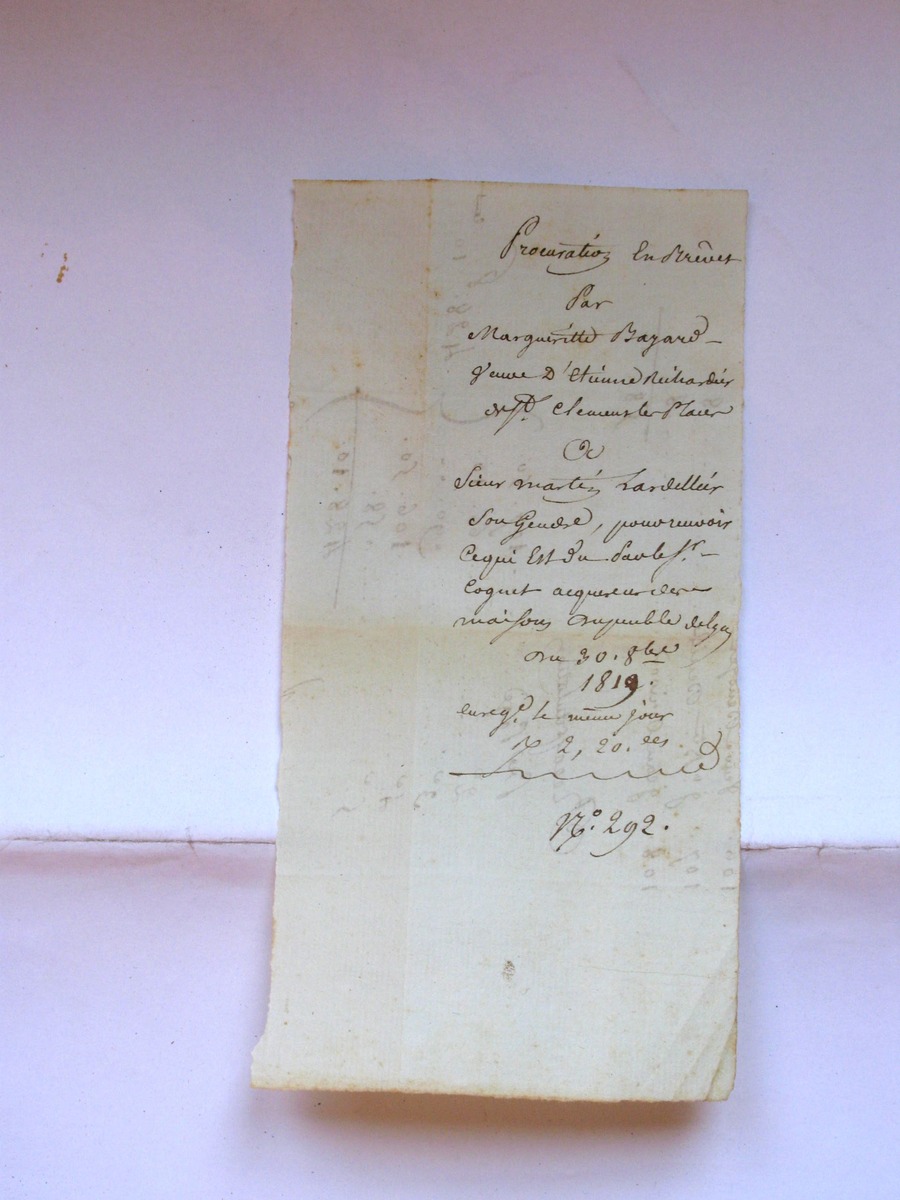 Procuration En Brevet
Par
Margueritte Bayard
Veuve D'Etienne Richardier
de St. Clement les Places
A
Sieur martin Lardellier
Son Gendre, pour recevoir
Ce qui Est du Par le Sr.
Coquet acquereur de
maisons de lyon
du 30. 8bre
1819.
enregé. le meme jour
2, 20. ces
No. 292.